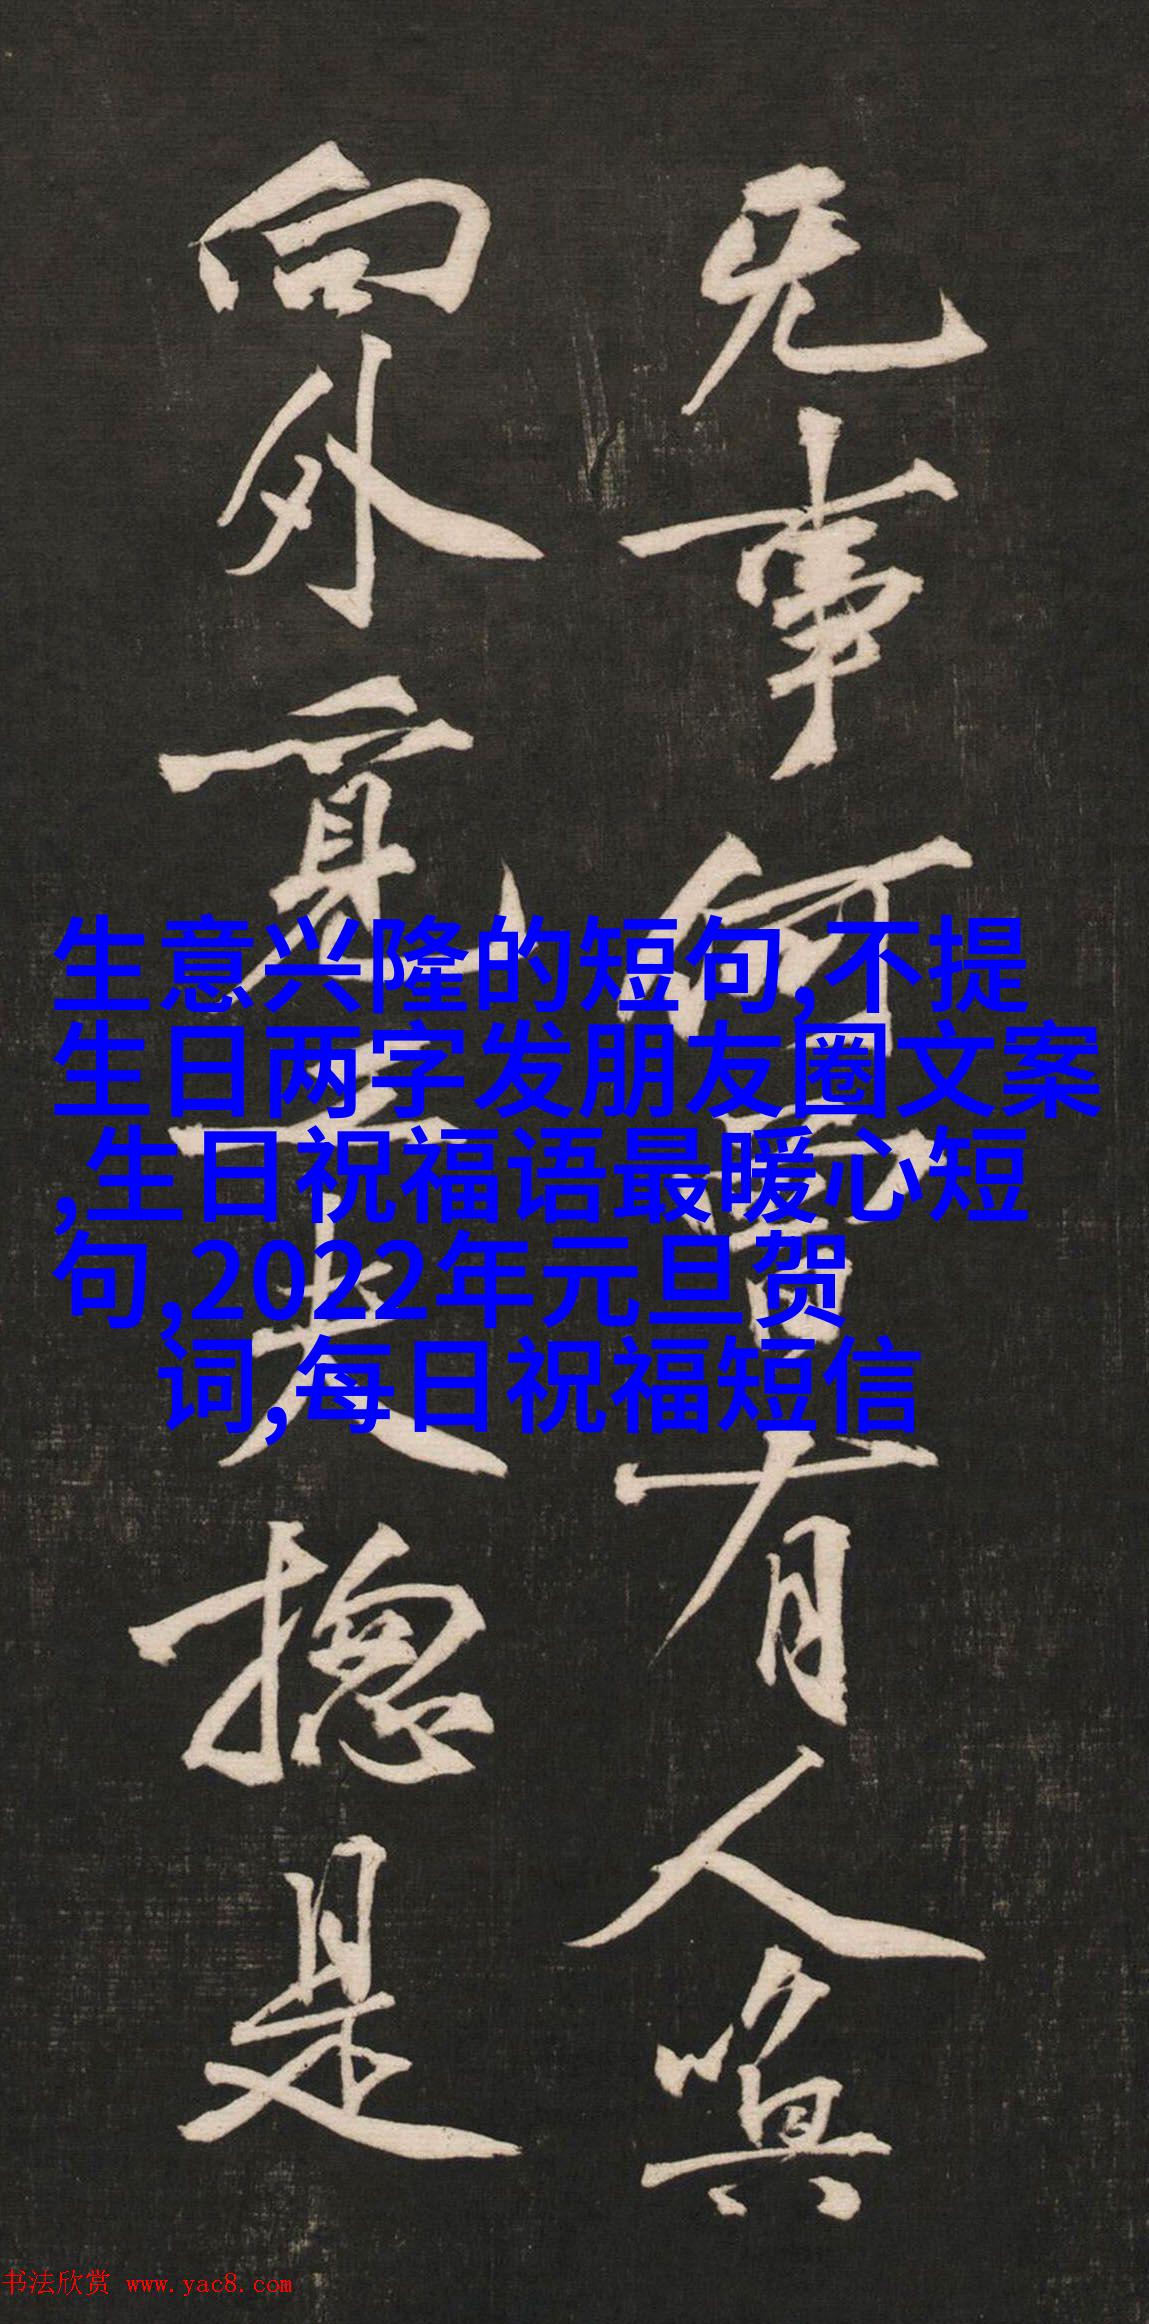 无事何曾有人唤
向外觅工夫摠是
生意兴隆的短句,不提
生日两字发朋友圈文案
,生日祝福语最暖心短
句,2022年元旦贺
词,每日祝福短信
书法欣赏 www.yac8.com